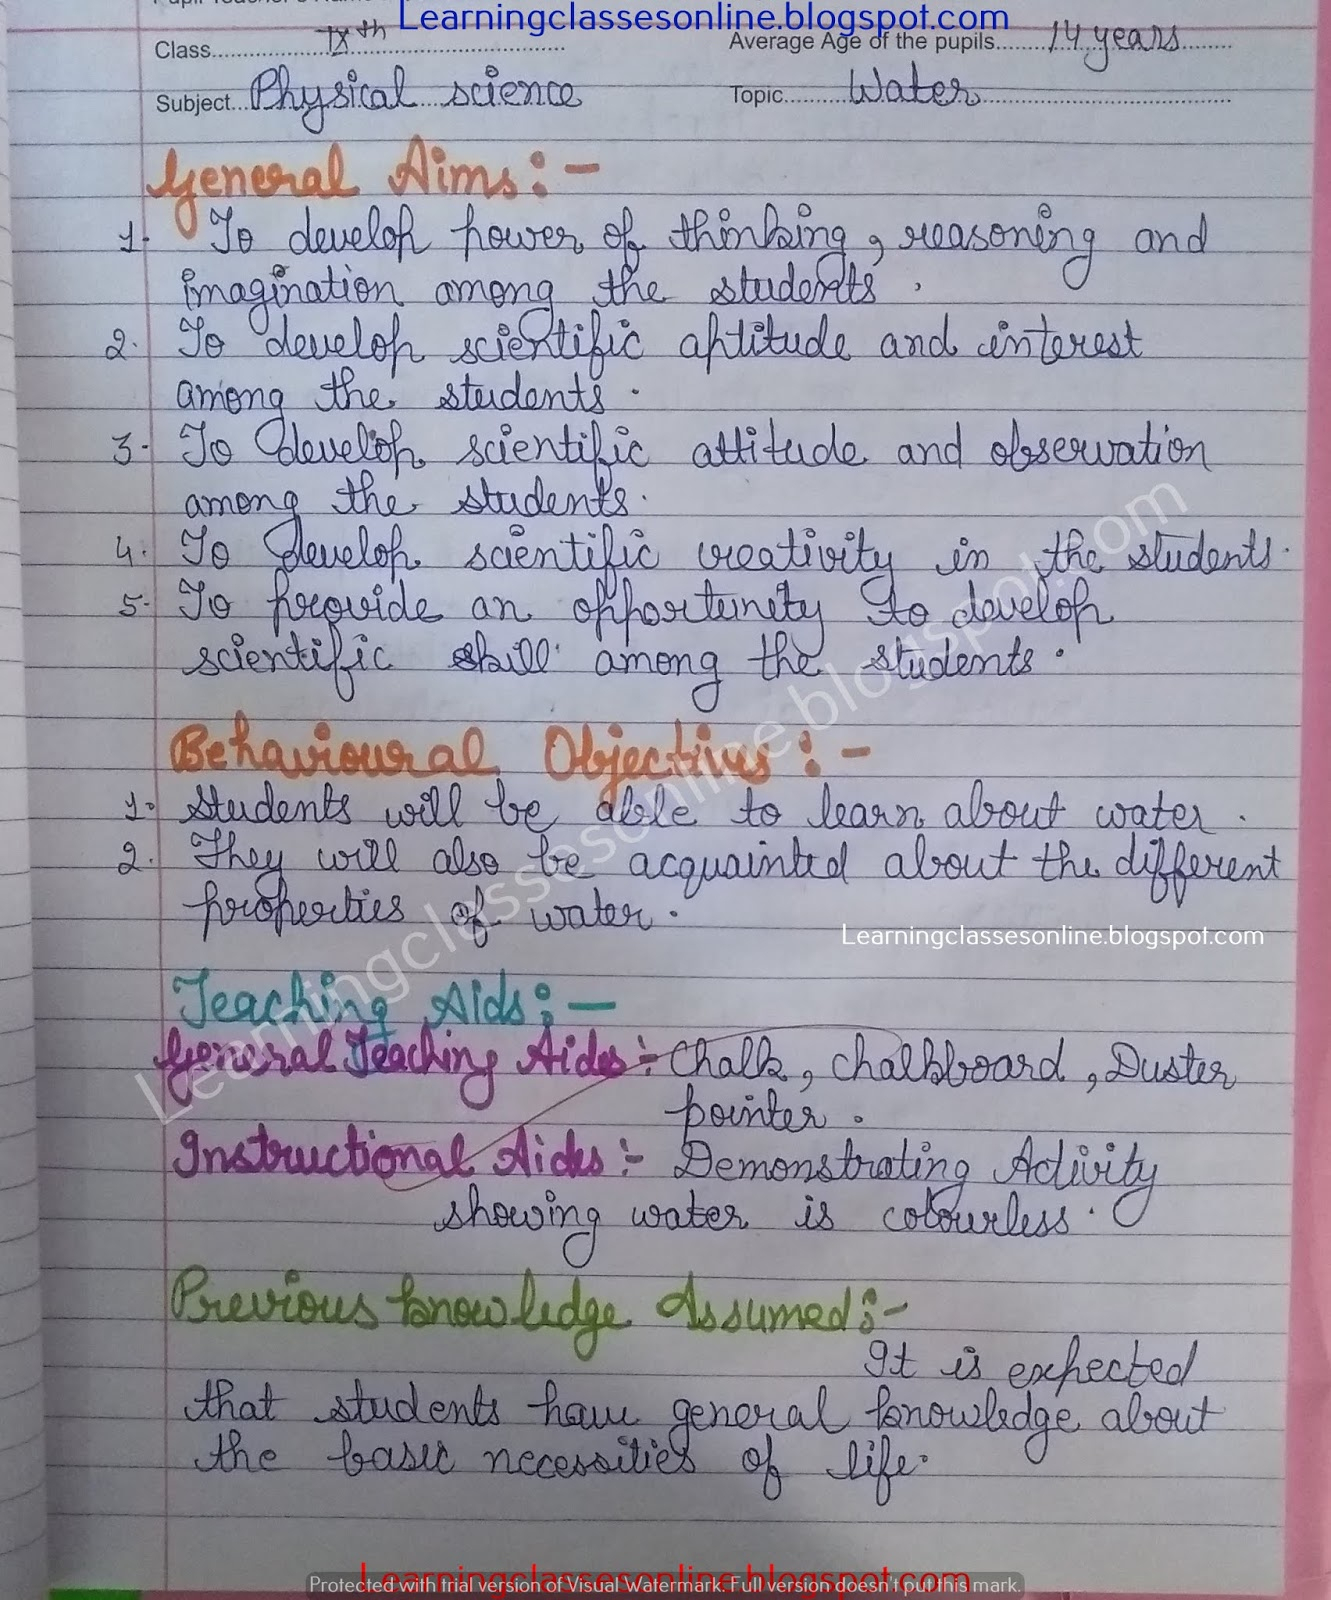 Learningclassesonline.blogspot.com
Class IXth Average Age of the pupils 14 years
Subject Physical science Topic Water
General Aims:-
1. To develop power of thinking, reasoning and
imagination among the students.
2. To develop scientific aptitude and interest
among the students.
3. To develop scientific attitude and observation
among the students.
4. To develop scientific creativity in the students.
5. To provide an opportunity to develop
scientific skill among the students.
Behavioural Objectives:-
1. Students will be able to learn about water.
2. They will also be acquainted about the different
properties of water.
Learningclassesonline.blogspot.com
Learningclassesonline.blogspot.com
Teaching Aids:-
General Teaching Aides:- Chalk, chalkboard, Duster
pointer.
Instructional Aides:- Demonstrating Activity
showing water is colourless.
Previous knowledge Assumed:-
It is expected
that students have general knowledge about
the basic necessities of life.
Learningclassesonline.blogspot.com
Protected with trial version of Visual Watermark. Full version doesn't put this mark.